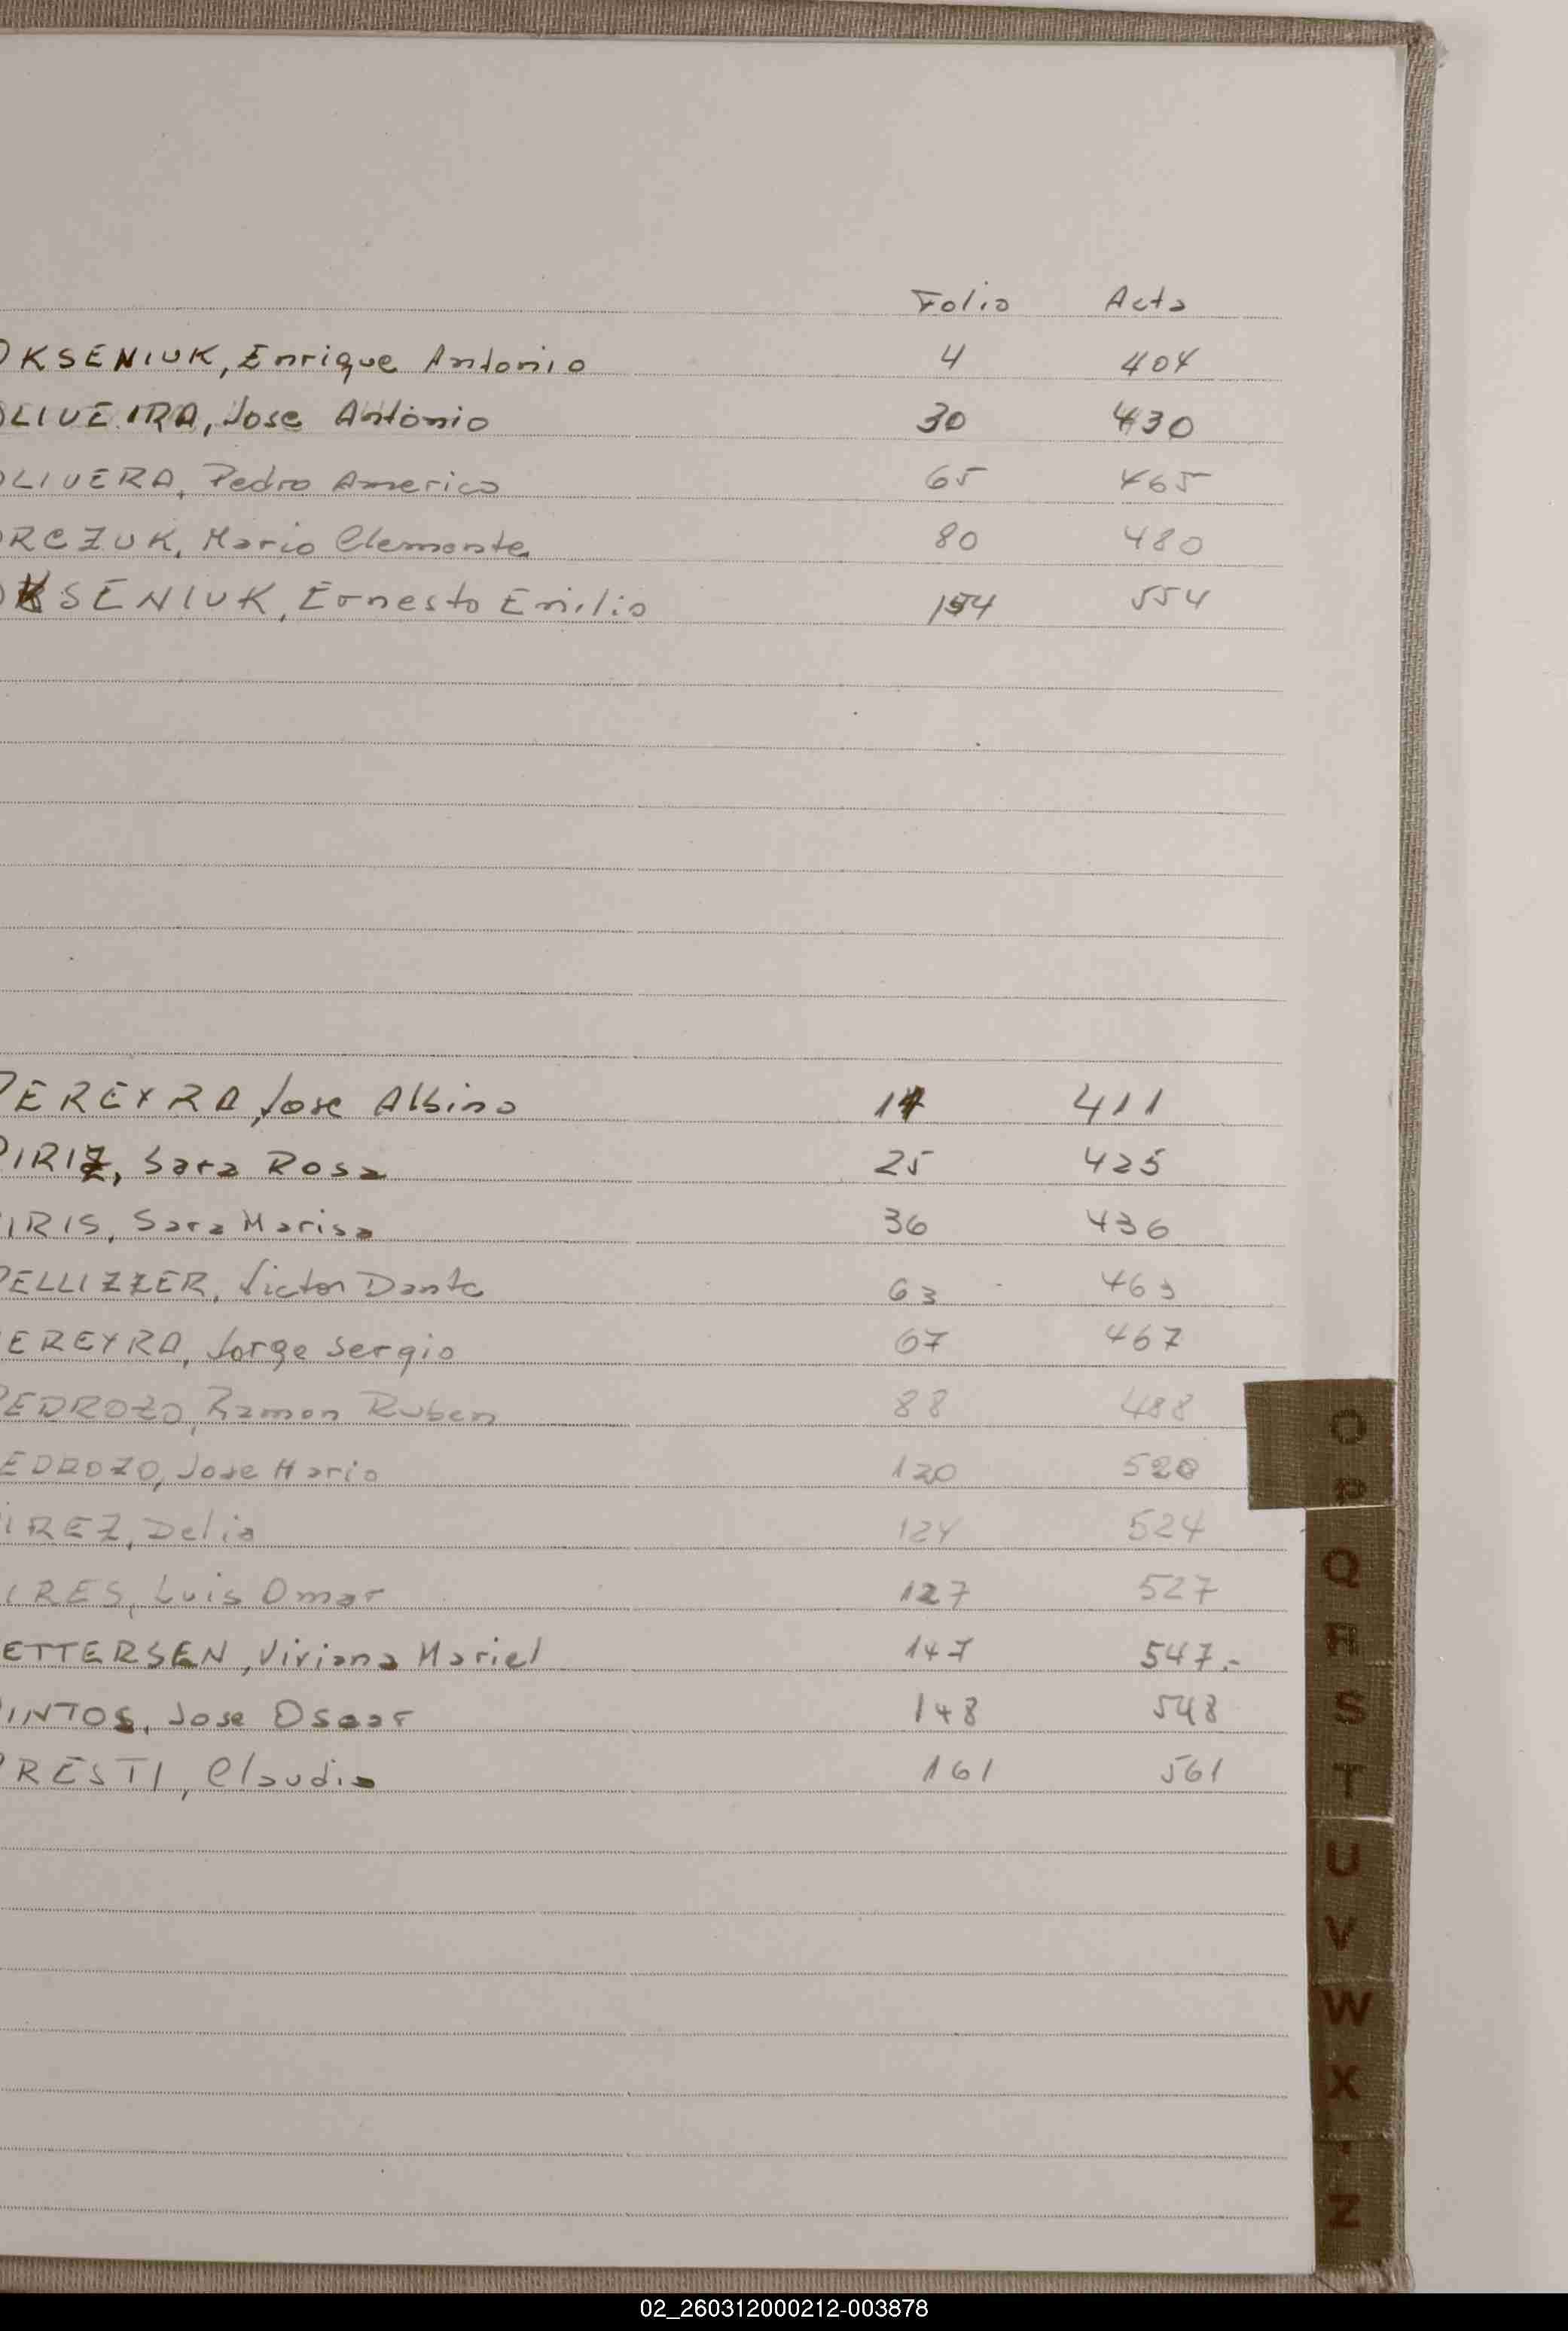 Folio Acta
OKSENIUK, Enrique Antonio 4 404
OLIVEIRA, Jose Antonio 30 430
OLIVERA, Pedro Americo 65 465
ORCZUK, Mario Clemente 80 480
OKSENIUK, Ernesto Emilio 154 554
PEREYRA, Jose Albino 11 411
PIRIZ, Sara Rosa 25 425
IRIS, Sara Marisa 36 436
PELLIZZER, Victor Dante 63 463
EREYRA, Jorge Sergio 67 467
PEDROZO, Ramon Ruben 88 488
EDROZO, Jose Mario 120 520
IREZ, Delia 124 524
IRES, Luis Omar 127 527
ETTERSEN, Viviana Mariel 147 547.-
PINTOS, Jose Oscar 148 548
PRESTI, Claudio 161 561
O
P
Q
R
S
T
U
V
W
X
Z
02_260312000212-003878